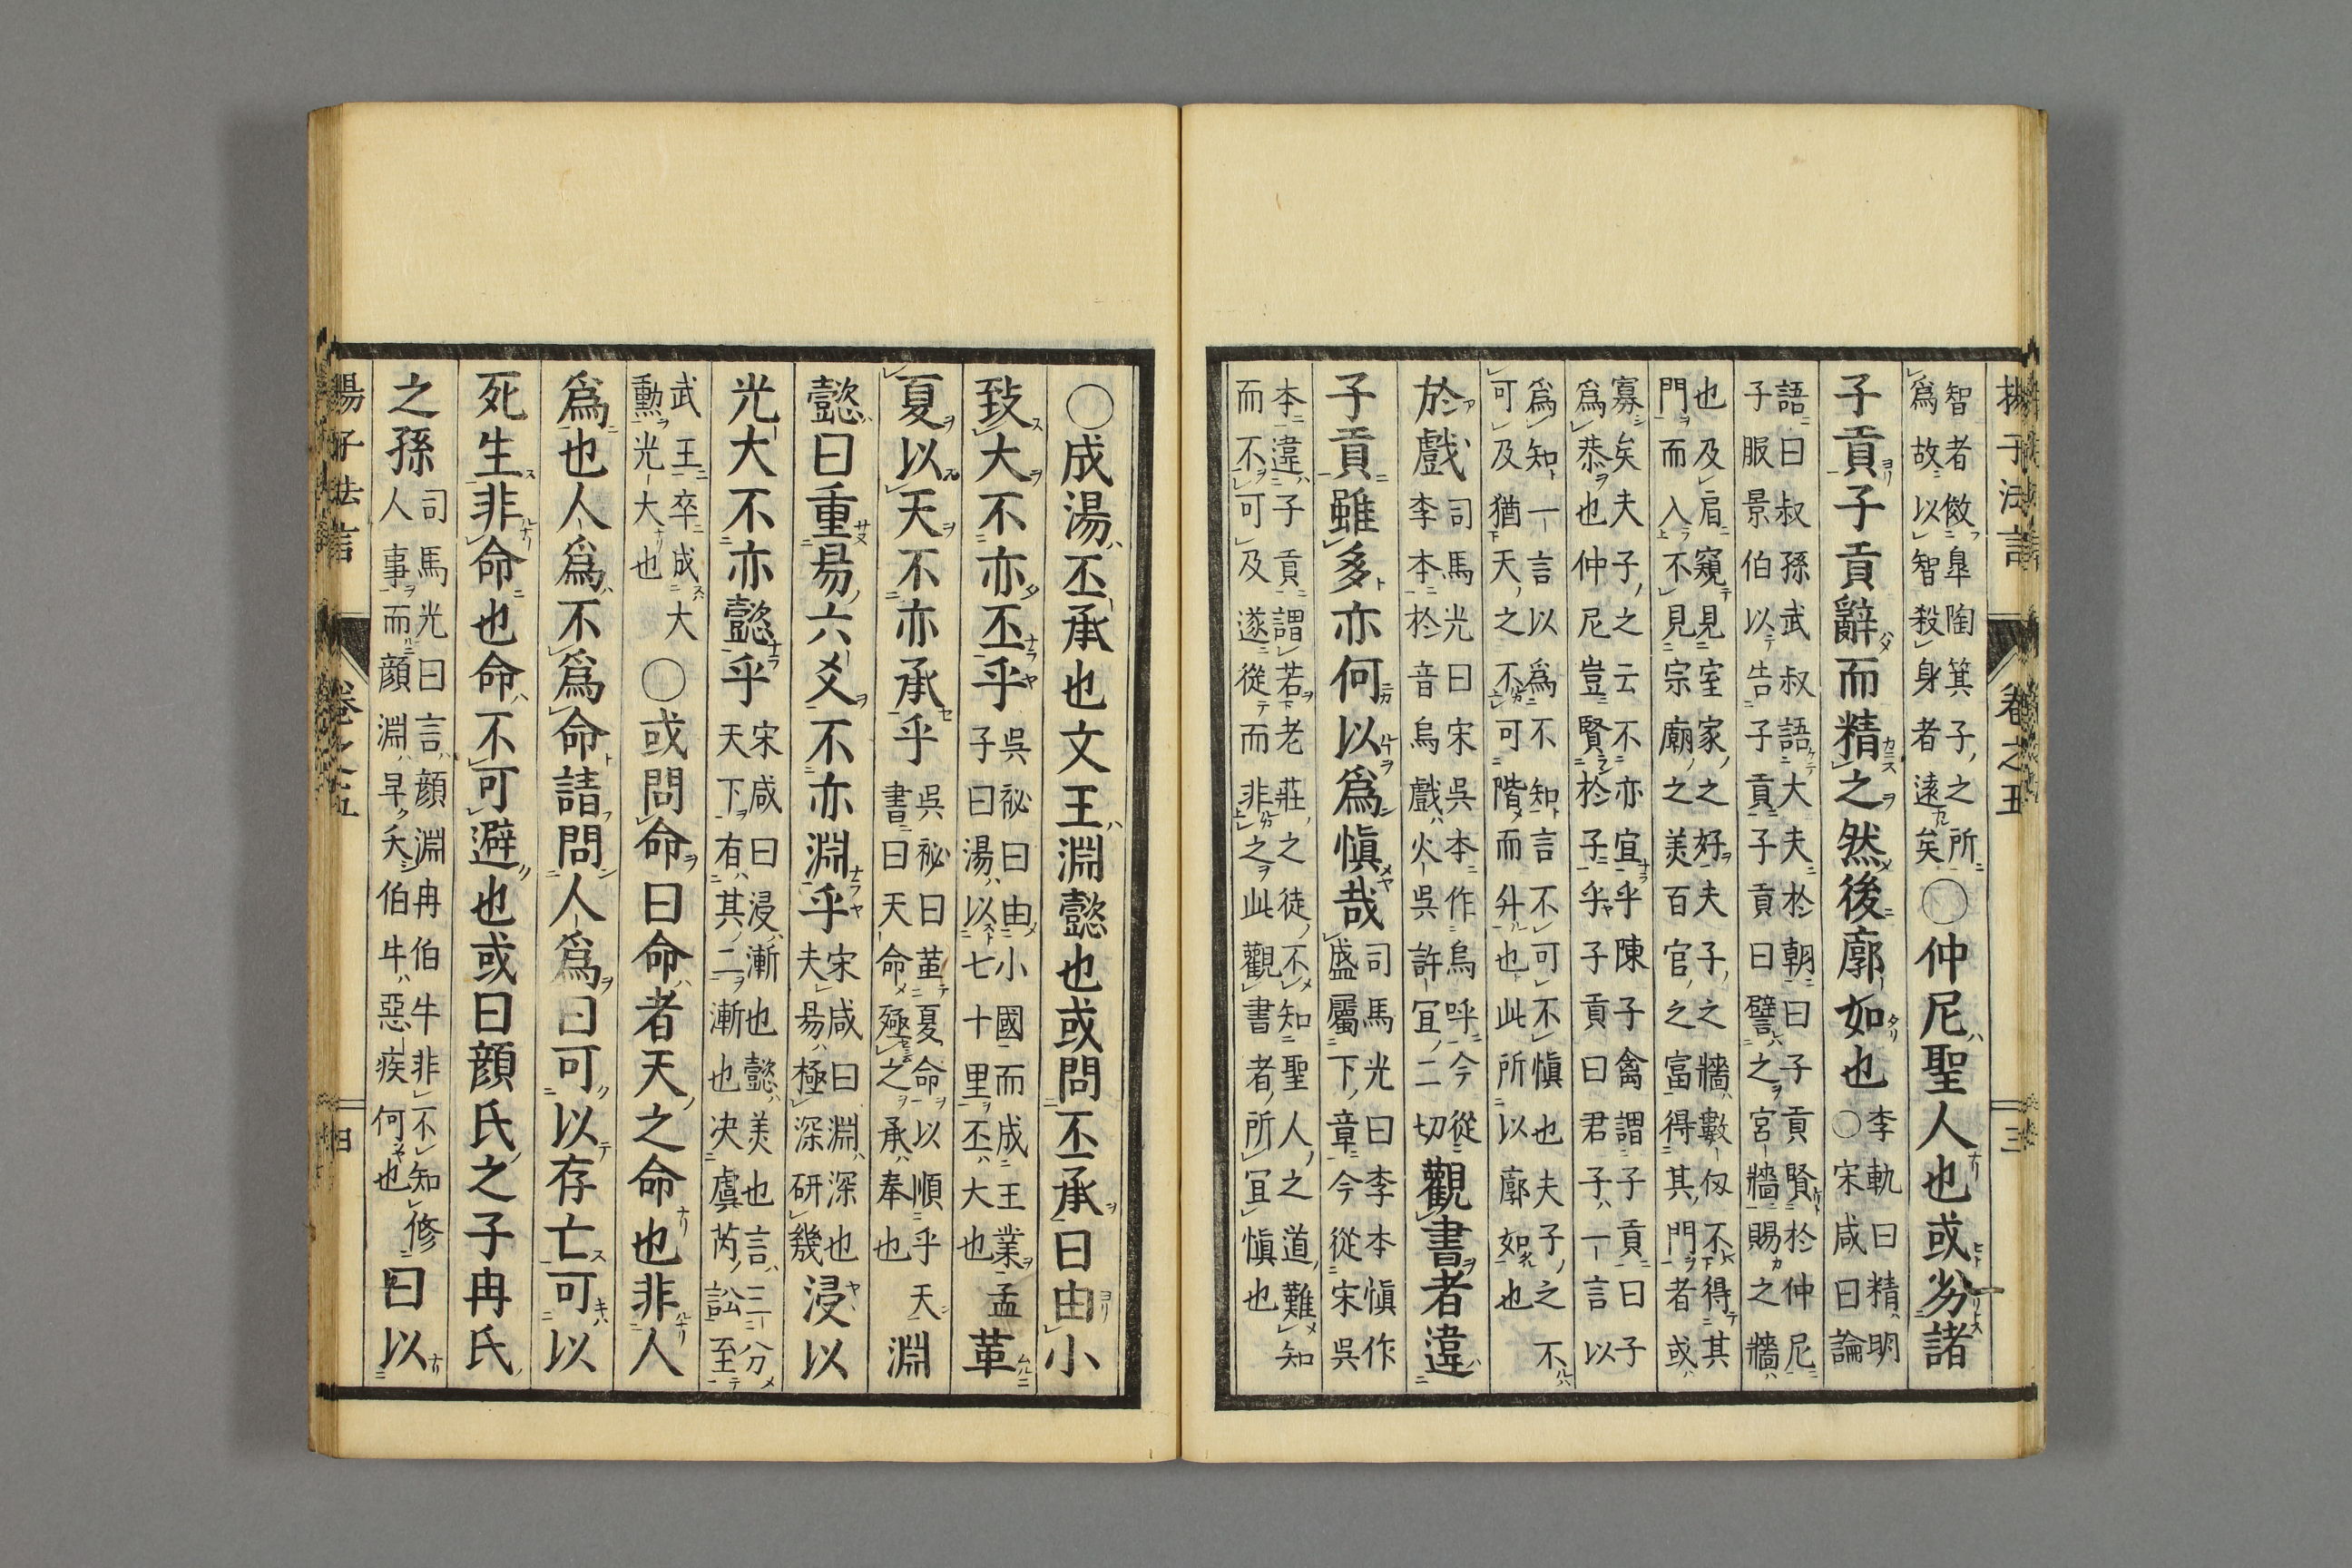 揚子法言 卷之五 三
智者傚臯陶箕子之所
爲故以智殺身者遠矣
〇仲尼聖人也或劣諸
子貢子貢辭而精之然後廓如也
李軌曰精明
〇宋咸曰論
語曰叔孫武叔語大夫於朝曰子貢賢於仲尼
子服景伯以告子貢子貢曰譬之宮牆賜之牆
也及肩窺見室家之好夫子之牆數仭不得其
門而入不見宗廟之美百官之富得其門者或
寡矣夫子之云不亦宜乎陳子禽謂子貢曰子
爲恭也仲尼豈賢於子乎子貢曰君子一言以
爲知一言以爲不知言不可不愼也夫子之不
可及猶天之不可階而升也此所以廓如也
於戲
司馬光曰宋吳本作烏呼今從
李本於音烏戲火吳許宜二切
觀書者違
子貢雖多亦何以爲愼哉
司馬光曰李本愼作
盛屬下章今從宋吳
本違子貢謂若老莊之徒不知聖人之道難知
而不可及遂從而非之此觀書者所宜愼也
〇成湯丕承也文王淵懿也或問丕承曰由小
致大不亦丕乎
吳祕曰由小國而成王業孟
子曰湯以七十里丕大也
革
夏以天不亦承乎
吳祕曰革夏命以順乎天
書曰天命殛之承奉也
淵
懿曰重易六爻不亦淵乎
宋咸曰淵深也
夫易極深研幾
浸以
光大不亦懿乎
宋咸曰浸漸也懿美也言三分
天下有其二漸也决虞芮訟至
武王卒成大
勳光大也
〇或問命曰命者天之命也非人
爲也人爲不爲命請問人爲曰可以存亡可以
死生非命也命不可避也或曰顏氏之子冉氏
之孫
司馬光曰言顏淵冉伯牛非不知修
人事而顏淵早夭伯牛惡疾何也
曰以
揚子法言 卷之五 四